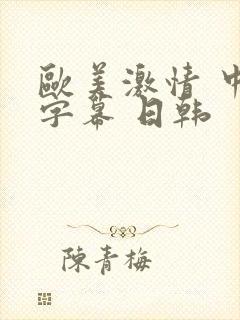 歐美激情 中
字幕 日韩
陳青梅